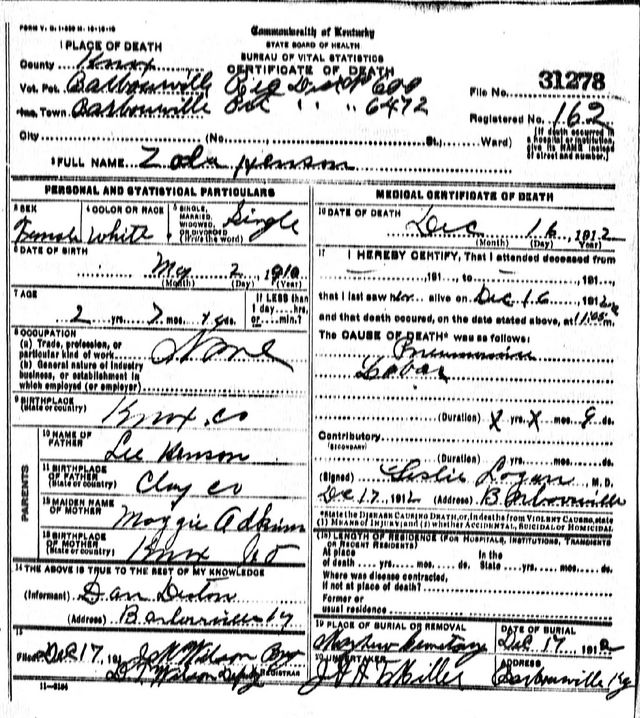 FORM V. S. 1-
Commonwealth of Kentucky
STATE BOARD OF HEALTH
BUREAU OF VITAL STATISTICS
CERTIFICATE OF DEATH
1 PLACE OF DEATH
County Knox
Vot. Pct. Barbourville Reg Dist No 600
Inc. Town Barbourville Pct " " 6472
City (No. St., Ward)
File No. 31278
Registered No. 162
[If death occurred in a hospital or institution, give its NAME instead of street and number.]
2 FULL NAME Zola Henson
PERSONAL AND STATISTICAL PARTICULARS
3 SEX Female
4 COLOR OR RACE White
5 SINGLE, MARRIED, WIDOWED, OR DIVORCED (Write the word) Single
6 DATE OF BIRTH May 2, 1910
(Month) (Day) (Year)
7 AGE 2 yrs. 7 mos. ds.
If LESS than 1 day ....hrs. or ....min.?
8 OCCUPATION
(a) Trade, profession, or particular kind of work
(b) General nature of industry business, or establishment in which employed (or employer)
None
9 BIRTHPLACE
(State or country) Knox, co
PARENTS
10 NAME OF FATHER Lee Henson
11 BIRTHPLACE OF FATHER
(State or country) Clay co
12 MAIDEN NAME OF MOTHER Maggie Adkins
13 BIRTHPLACE OF MOTHER
(State or country) Knox co
14 THE ABOVE IS TRUE TO THE BEST OF MY KNOWLEDGE
(Informant) Dan
(Address) Barbourville Ky
15
Filed Dec 17, 191 Wilson
Wilson Deputy REGISTRAR
11-3184
MEDICAL CERTIFICATE OF DEATH
16 DATE OF DEATH Dec 16, 1912
(Month) (Day) (Year)
17 I HEREBY CERTIFY, That I attended deceased from
, 191..., to , 191...,
that I last saw her alive on Dec 16, 1912
and that death occured, on the date stated above, at 11:05 m.
The CAUSE OF DEATH* was as follows:
Pneumonia
Lobar
(Duration) X yrs. X mos. 9 ds.
Contributory
(SECONDARY)
(Duration) yrs. mos. ds.
(Signed) Leslie Logan, M. D.
Dec 17, 1912 (Address) Barbourville
*State the DISEASE CAUSING DEATH, or, in deaths from VIOLENT CAUSES, state (1) MEANS OF INJURY; and (2) whether ACCIDENTAL, SUICIDAL or HOMICIDAL
18 LENGTH OF RESIDENCE (FOR HOSPITALS, INSTITUTIONS, TRANSIENTS OR RECENT RESIDENTS)
At place of death yrs. mos. ds. In the State yrs. mos. ds.
Where was disease contracted, if not at place of death?
Former or usual residence
19 PLACE OF BURIAL OR REMOVAL
Cemetary
DATE OF BURIAL
Dec 17, 191
20 UNDERTAKER
Miller
ADDRESS
Barbourville Ky